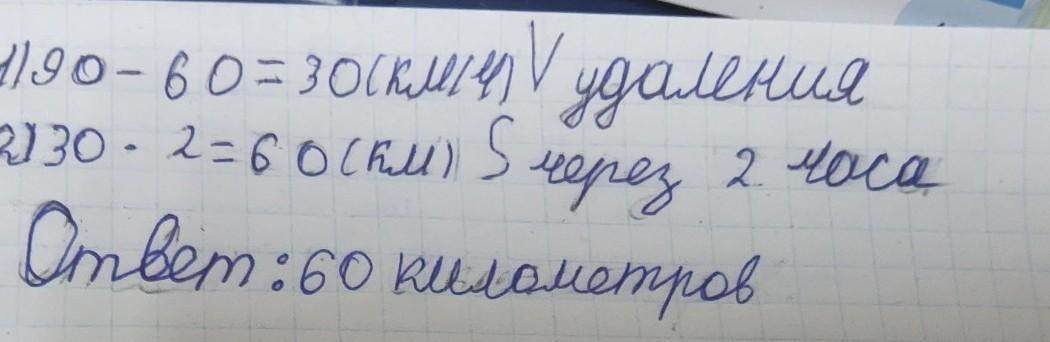 1) 90 - 60 = 30 (км/ч) V удаления
2) 30 · 2 = 60 (км) S через 2 часа
Ответ: 60 километров